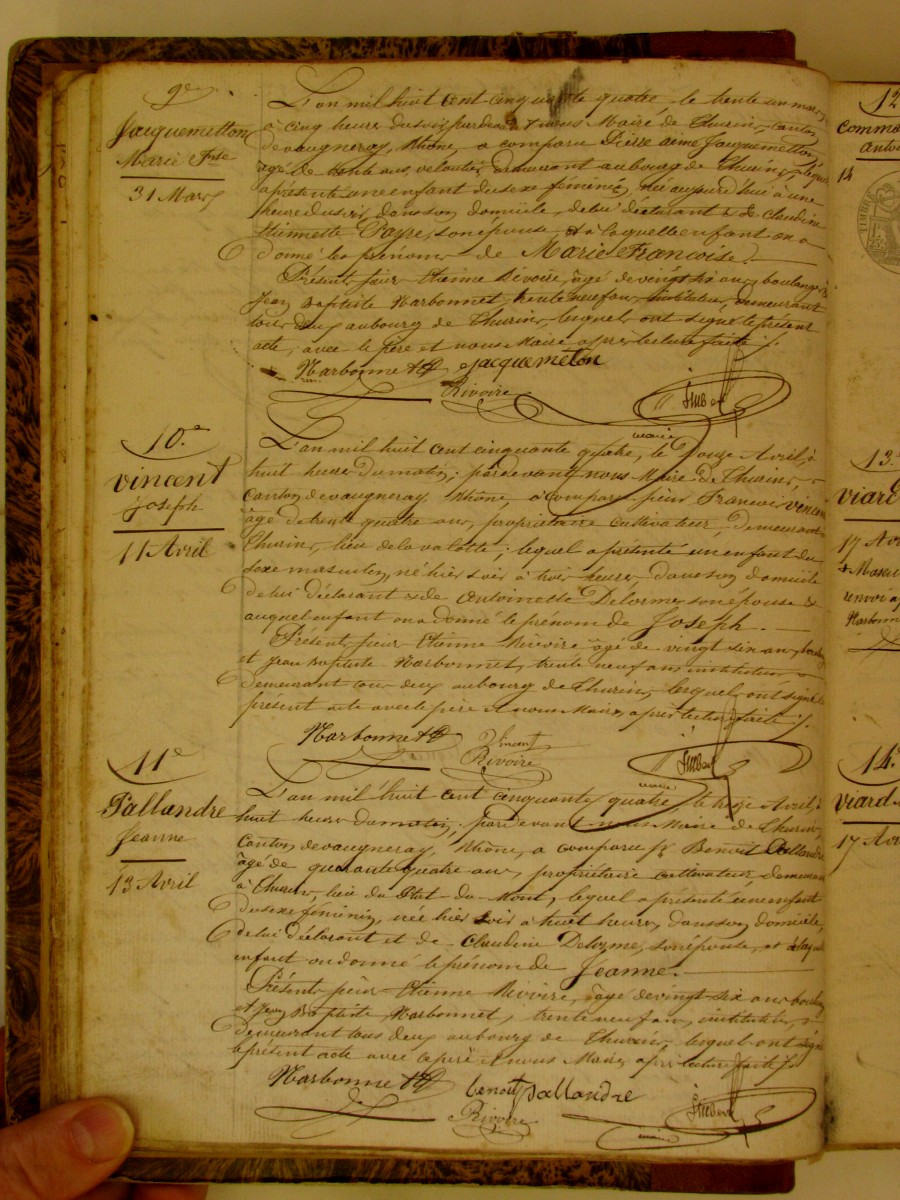 9e
Jacquemetton
Marie Fçse
31 Mars
L'an mil huit cent cinquante quatre le trente un mars,
à cinq heures du soir, pardevant nous Maire de Thurin, canton
de vaugneray, Rhône, a comparu Pierre aimé Jacquemetton,
âgé de trente ans, veloutier, demeurant au bourg de Thurin, lequel
a présenté une enfant du sexe féminin, née aujourd'hui à une
heure du soir, dans son domicile, de lui déclarant & de Claudine
Etiennette Payre, son épouse, & à laquelle enfant on a
donné les prénoms de Marie Françoise.
Présents, sieurs Etienne Rivoire, âgé de vingt six ans, boulanger &
Jean Baptiste Narbonnet, trente neuf ans, instituteur, demeurant
tous deux au bourg de Thurin, lesquels ont signé le présent
acte, avec le père et nous Maire après lecture faite ./.
Narbonnet jacquemeton
Rivoire
Imbert
maire
10.e
vincent
joseph
11 Avril
L'an mil huit cent cinquante quatre, le Douze Avril, à
huit heures du matin; pardevant nous Maire de Thurin,
Canton de vaugneray, Rhône, a comparu sieur Francois vincent
âgé de trente quatre ans, propriétaire cultivateur, demeurant à
Thurin, lieu de la valotte; lequel a présenté un enfant du
sexe masculin, né hier soir à trois heures dans son domicile
de lui déclarant & de Antoinette Delorme, son épouse &
auquel enfant on a donné le prénom de Joseph.
Présents, sieurs Etienne Rivoire âgé de vingt six ans, boulanger
et Jean Baptiste Narbonnet, trente neuf ans instituteur
demeurant tous deux au bourg de Thurin, lesquels ont signé le
présent acte avec le père et nous Maire, après lecture faite ./.
Narbonnet Vincent
Rivoire
Imbert
maire
11e
Pallandre
Jeanne
13 Avril
L'an mil huit cent cinquante quatre le treize Avril, à
huit heures du matin; pardevant nous Maire de Thurin,
Canton de vaugneray, Rhône, a comparu sr Benoit Pallandre
âgé de quarante quatre ans, propriétaire cultivateur, demeurant
à Thurin, lieu du Mont, lequel a présenté une enfant
du sexe féminin, née hier soir à huit heures, dans son domicile,
de lui déclarant et de Claudine Delorme, son épouse, et à laquelle
enfant on donné le prénom de Jeanne.
Présents sieurs Etienne Rivoire, âgé de vingt six ans boulanger
et Jean Baptiste Narbonnet, trente neuf ans, instituteur,
demeurant tous deux au bourg de Thurin, lesquels ont signé
le présent acte avec le père et nous Maire, après lecture faite ./.
Narbonnet benoit pallandre
Rivoire
Imbert
maire
12
14
TIMBRE
13.e
viard
17 Avril
renvoi
14.e
viard
17 Avril